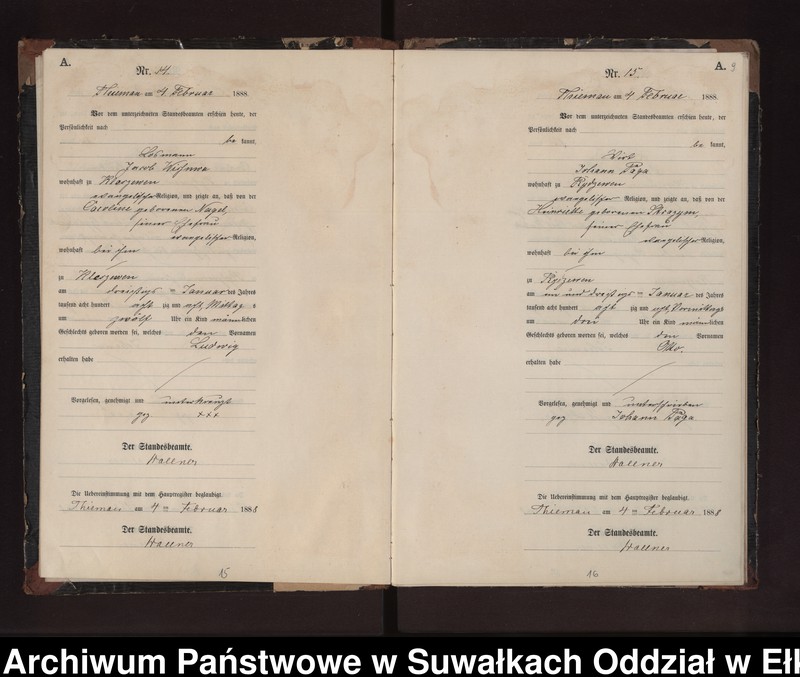 A.
Nr. 14.
am 4 Februar 1888.
Vor dem unterzeichneten Standesbeamten erschien heute, der
Persönlichkeit nach
be kannt,
Losmann
Jacob
wohnhaft zu
evangelischer Religion, und zeigte an, daß von der
Caroline geborenen Nagel,
seiner Ehefrau
evangelischer Religion,
wohnhaft bei ihm
zu
am dreißigs ten Januar des Jahres
tausend acht hundert acht zig und acht Mittags
um zwölf Uhr ein Kind männlichen
Geschlechts geboren worden sei, welches den Vornamen
Ludwig
erhalten habe
Vorgelesen, genehmigt und unterkreuzt
gez xxx
Der Standesbeamte.
Wallner
Die Uebereinstimmung mit dem Hauptregister beglaubigt.
am 4 ten Februar 1888
Der Standesbeamte.
Wallner
15
A. 9
Nr. 15.
am 4 Februar 1888.
Vor dem unterzeichneten Standesbeamten erschien heute, der
Persönlichkeit nach
be kannt,
Wirt
Johann
wohnhaft zu Rydzewen
evangelischer Religion, und zeigte an, daß von der
Henriette geborenen
seiner Ehefrau
evangelischer Religion,
wohnhaft bei ihm
zu Rydzewen
am ein und dreißigs ten Januar des Jahres
tausend acht hundert acht zig und acht Vormittags
um drei Uhr ein Kind männlichen
Geschlechts geboren worden sei, welches den Vornamen
Otto,
erhalten habe
Vorgelesen, genehmigt und unterschrieben
gez Johann
Der Standesbeamte.
Wallner
Die Uebereinstimmung mit dem Hauptregister beglaubigt.
am 4 ten Februar 1888
Der Standesbeamte.
Wallner
16
Archiwum Państwowe w Suwałkach Oddział w Ełk